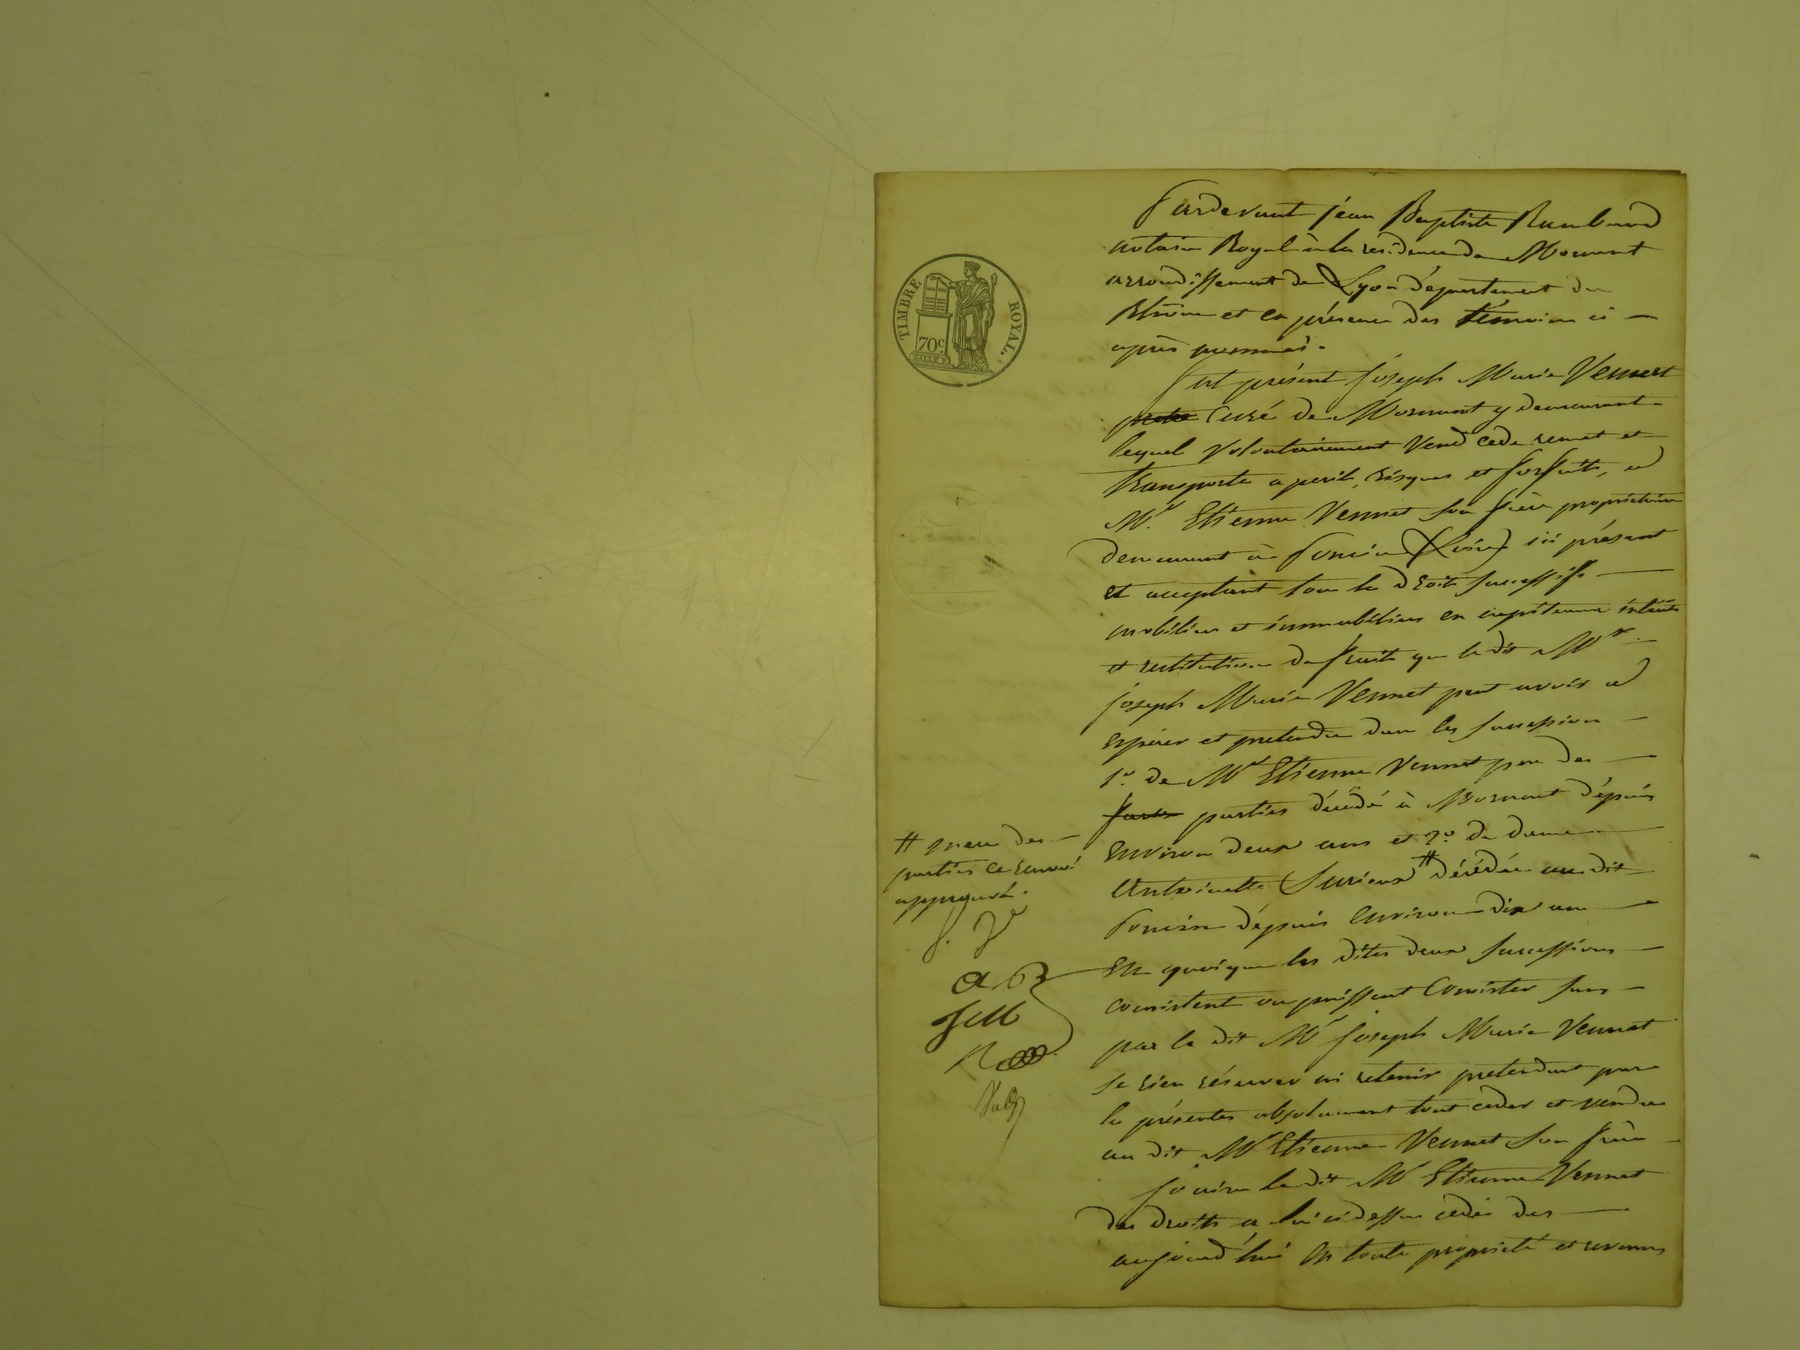 TIMBRE ROYAL.
70c.
Pardevant jéan Baptiste Rambaud
notaire Royal à la résidence de Mornant
arrondissement de Lyon département du
Rhône et en présence des témoins ci
après nommés.
fut présent joseph Marie Vennet
curé de Mornant y demeurant
lequel volontairement vend cede remet et
transporte a peril, risques et forfait, a
Mr. Etienne Vennet son frère propriétaire
demeurant à Poncin ici présent
et acceptant tous les droits successifs
mobiliers et immobiliers en capiteaux intérêts
et restitution de fruits que le dit Mr.
joseph Marie Vennet peut avoir a
espérer et pretendre dans les succession
1o. de Mr Etienne Vennet pere des
parties décédé à Mornant dépuis
environ deux ans et 2o. de dame
Antoinette # décédée au dit
Poncin dépuis environ dix ans
En quoi que les dites deux successions
consistent ou puissent consister sans
par le dit Mr joseph Marie Vennet
se rien réserver ni retenir pretendant par
les présentes absolument tout ceder et vendre
au dit Mr Etienne Vennet son frère
jouira le dit Mr Etienne Vennet
des droits a lui ci dessus cédés des
aujourd'hui en toute propriété et revenus
# mere des
parties ce renvoi
approuvé.